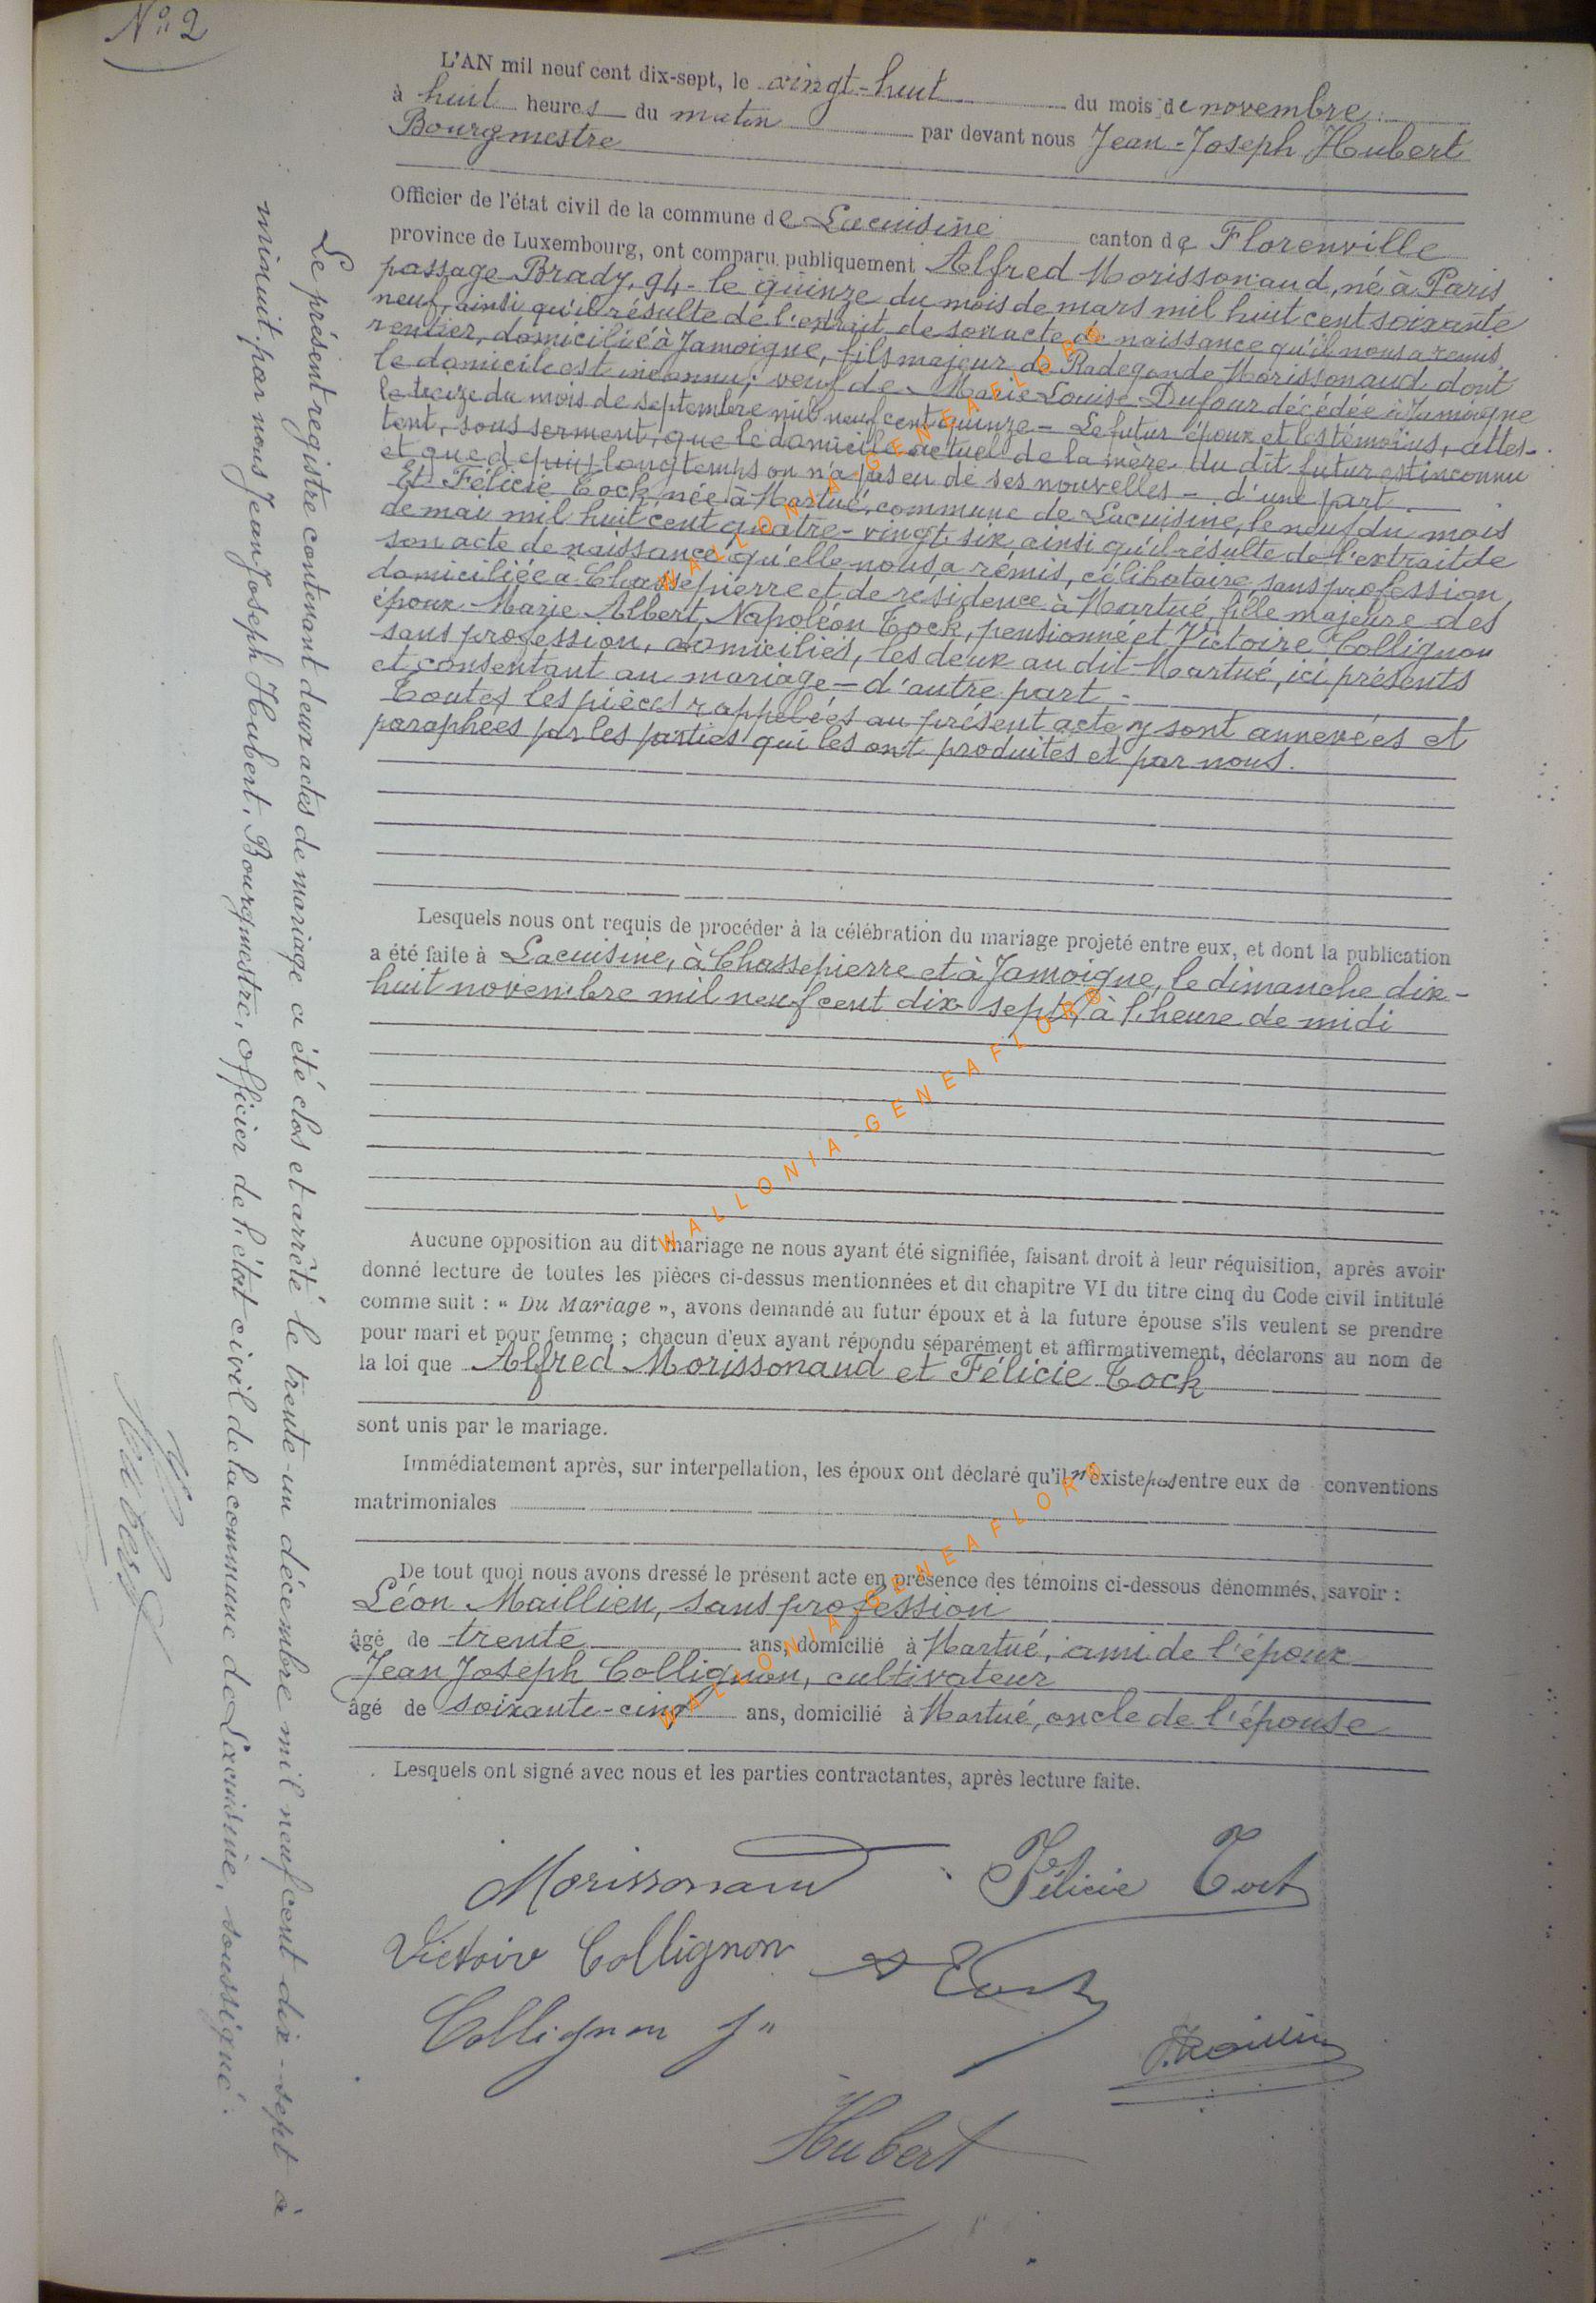 Nº 2
L'AN mil neuf cent dix-sept, le vingt-huit du mois de novembre
à huit heures du matin par devant nous Jean-Joseph Hubert
Bourgmestre
Officier de l'état civil de la commune de Lacuisine canton de Florenville
province de Luxembourg, ont comparu publiquement Alfred Morissonaud, né à Paris
passage Brady, 94 - le quinze du mois de mars mil huit cent soixante
neuf, ainsi qu'il résulte de l'extrait de son acte de naissance qu'il nous a remis,
rentier, domicilié à Jamoigne, fils majeur de Radegonde Morissonaud dont
le domicile est inconnu; veuf de Marie Louise Dufour décédée à Jamoigne
le treize du mois de septembre mil neuf cent quinze - Le futur époux et les témoins, attes-
tent, sous serment, que le domicile actuel de la mère du dit futur est inconnu
et que depuis longtemps on n'a pas eu de ses nouvelles - d'une part.
Et Félicie Tock née à Martué, commune de Lacuisine, le neuf du mois
de mai mil huit cent quatre-vingt six ainsi qu'il résulte de l'extrait de
son acte de naissance qu'elle nous a remis, célibataire sans profession,
domiciliée à Chassepierre et de résidence à Martué, fille majeure des
époux Marie Albert, Napoléon Tock, pensionné et Victoire Collignon
sans profession, domiciliés, les deux au dit Martué, ici présents
et consentant au mariage - d'autre part -
Toutes les pièces rappelées au présent acte y sont annexées et
paraphées par les parties qui les ont produites et par nous.
Lesquels nous ont requis de procéder à la célébration du mariage projeté entre eux, et dont la publication
a été faite à Lacuisine, à Chassepierre et à Jamoigne, le dimanche dix-
huit novembre mil neuf cent dix sept, à l'heure de midi
Aucune opposition au dit mariage ne nous ayant été signifiée, faisant droit à leur réquisition, après avoir
donné lecture de toutes les pièces ci-dessus mentionnées et du chapitre VI du titre cinq du Code civil intitulé
comme suit : « Du Mariage », avons demandé au futur époux et à la future épouse s'ils veulent se prendre
pour mari et pour femme ; chacun d'eux ayant répondu séparément et affirmativement, déclarons au nom de
la loi que Alfred Morissonaud et Félicie Tock
sont unis par le mariage.
Immédiatement après, sur interpellation, les époux ont déclaré qu'il n'existe pas entre eux de conventions
matrimoniales
De tout quoi nous avons dressé le présent acte en présence des témoins ci-dessous dénommés, savoir :
Léon Maillien, sans profession
âgé de trente ans, domicilié à Martué, ami de l'époux
Jean Joseph Collignon, cultivateur
âgé de soixante-cinq ans, domicilié à Martué, oncle de l'épouse
Lesquels ont signé avec nous et les parties contractantes, après lecture faite.
Morissonaud Félicie Tock
Victoire Collignon Tock
Collignon J
Hubert
Le présent registre contenant deux actes de mariage a été clos et arrêté le trente-un décembre mil neuf cent dix-sept à
minuit par nous Jean Joseph Hubert, Bourgmestre, officier de l'état civil de la commune de Lacuisine, soussigné.
Hubert
WALLONIA-GENEAFLORE
WALLONIA-GENEAFLORE
WALLONIA-GENEAFLORE